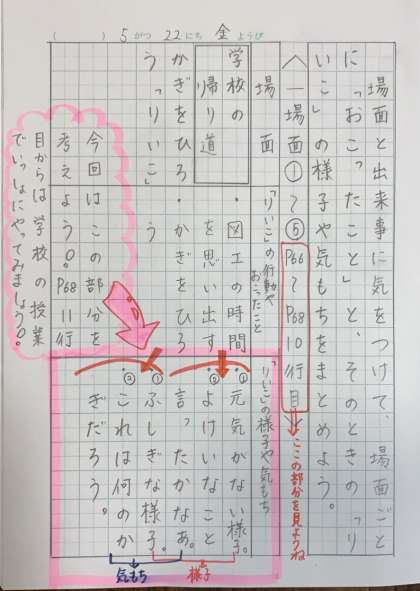 ( ) 5がつ 22にち 金ようび
場面と出来事に気をつけて、場面ごと
に「おこったこと」と、そのときの「り
いこ」の様子や気もちをまとめよう。
〈一場面①〜⑤P66〜P68 10行目
ここの部分を見ようね
場面
「りいこ」の行動や
おこったこと
「りいこ」の様子や気もち
学校の
帰り道
・図工の時間
を思い出す
①元気がない様子。
②よけいなこと
言ったかなあ。
かぎをひろ
う「りいこ」
・かぎをひろ
う
①ふしぎな様子。
②これは何のか
ぎだろう。
様子
気もち
今回はこの部分を
考えよう!。P68 11行
目からは学校の授業
でいっしょにやってみましょう!。